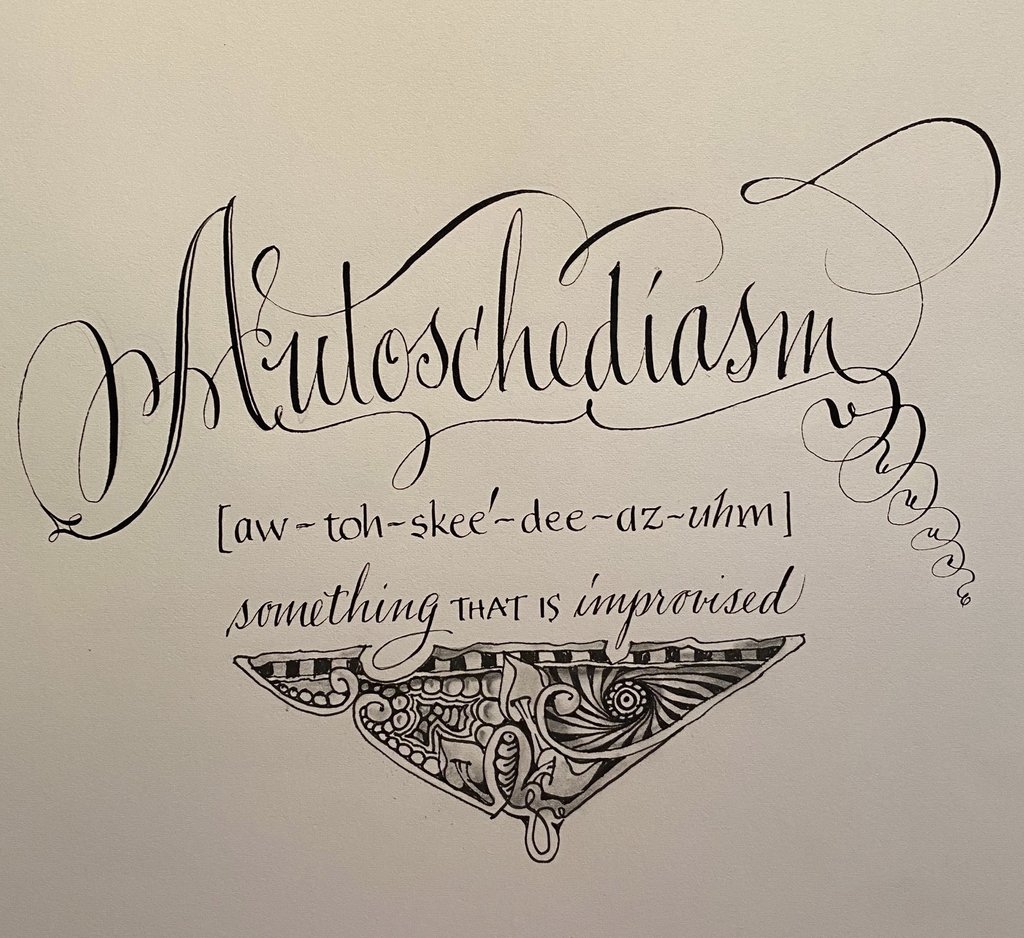 Autoschediasm
[aw~toh~skee'~dee~az~uhm]
something THAT IS improvised